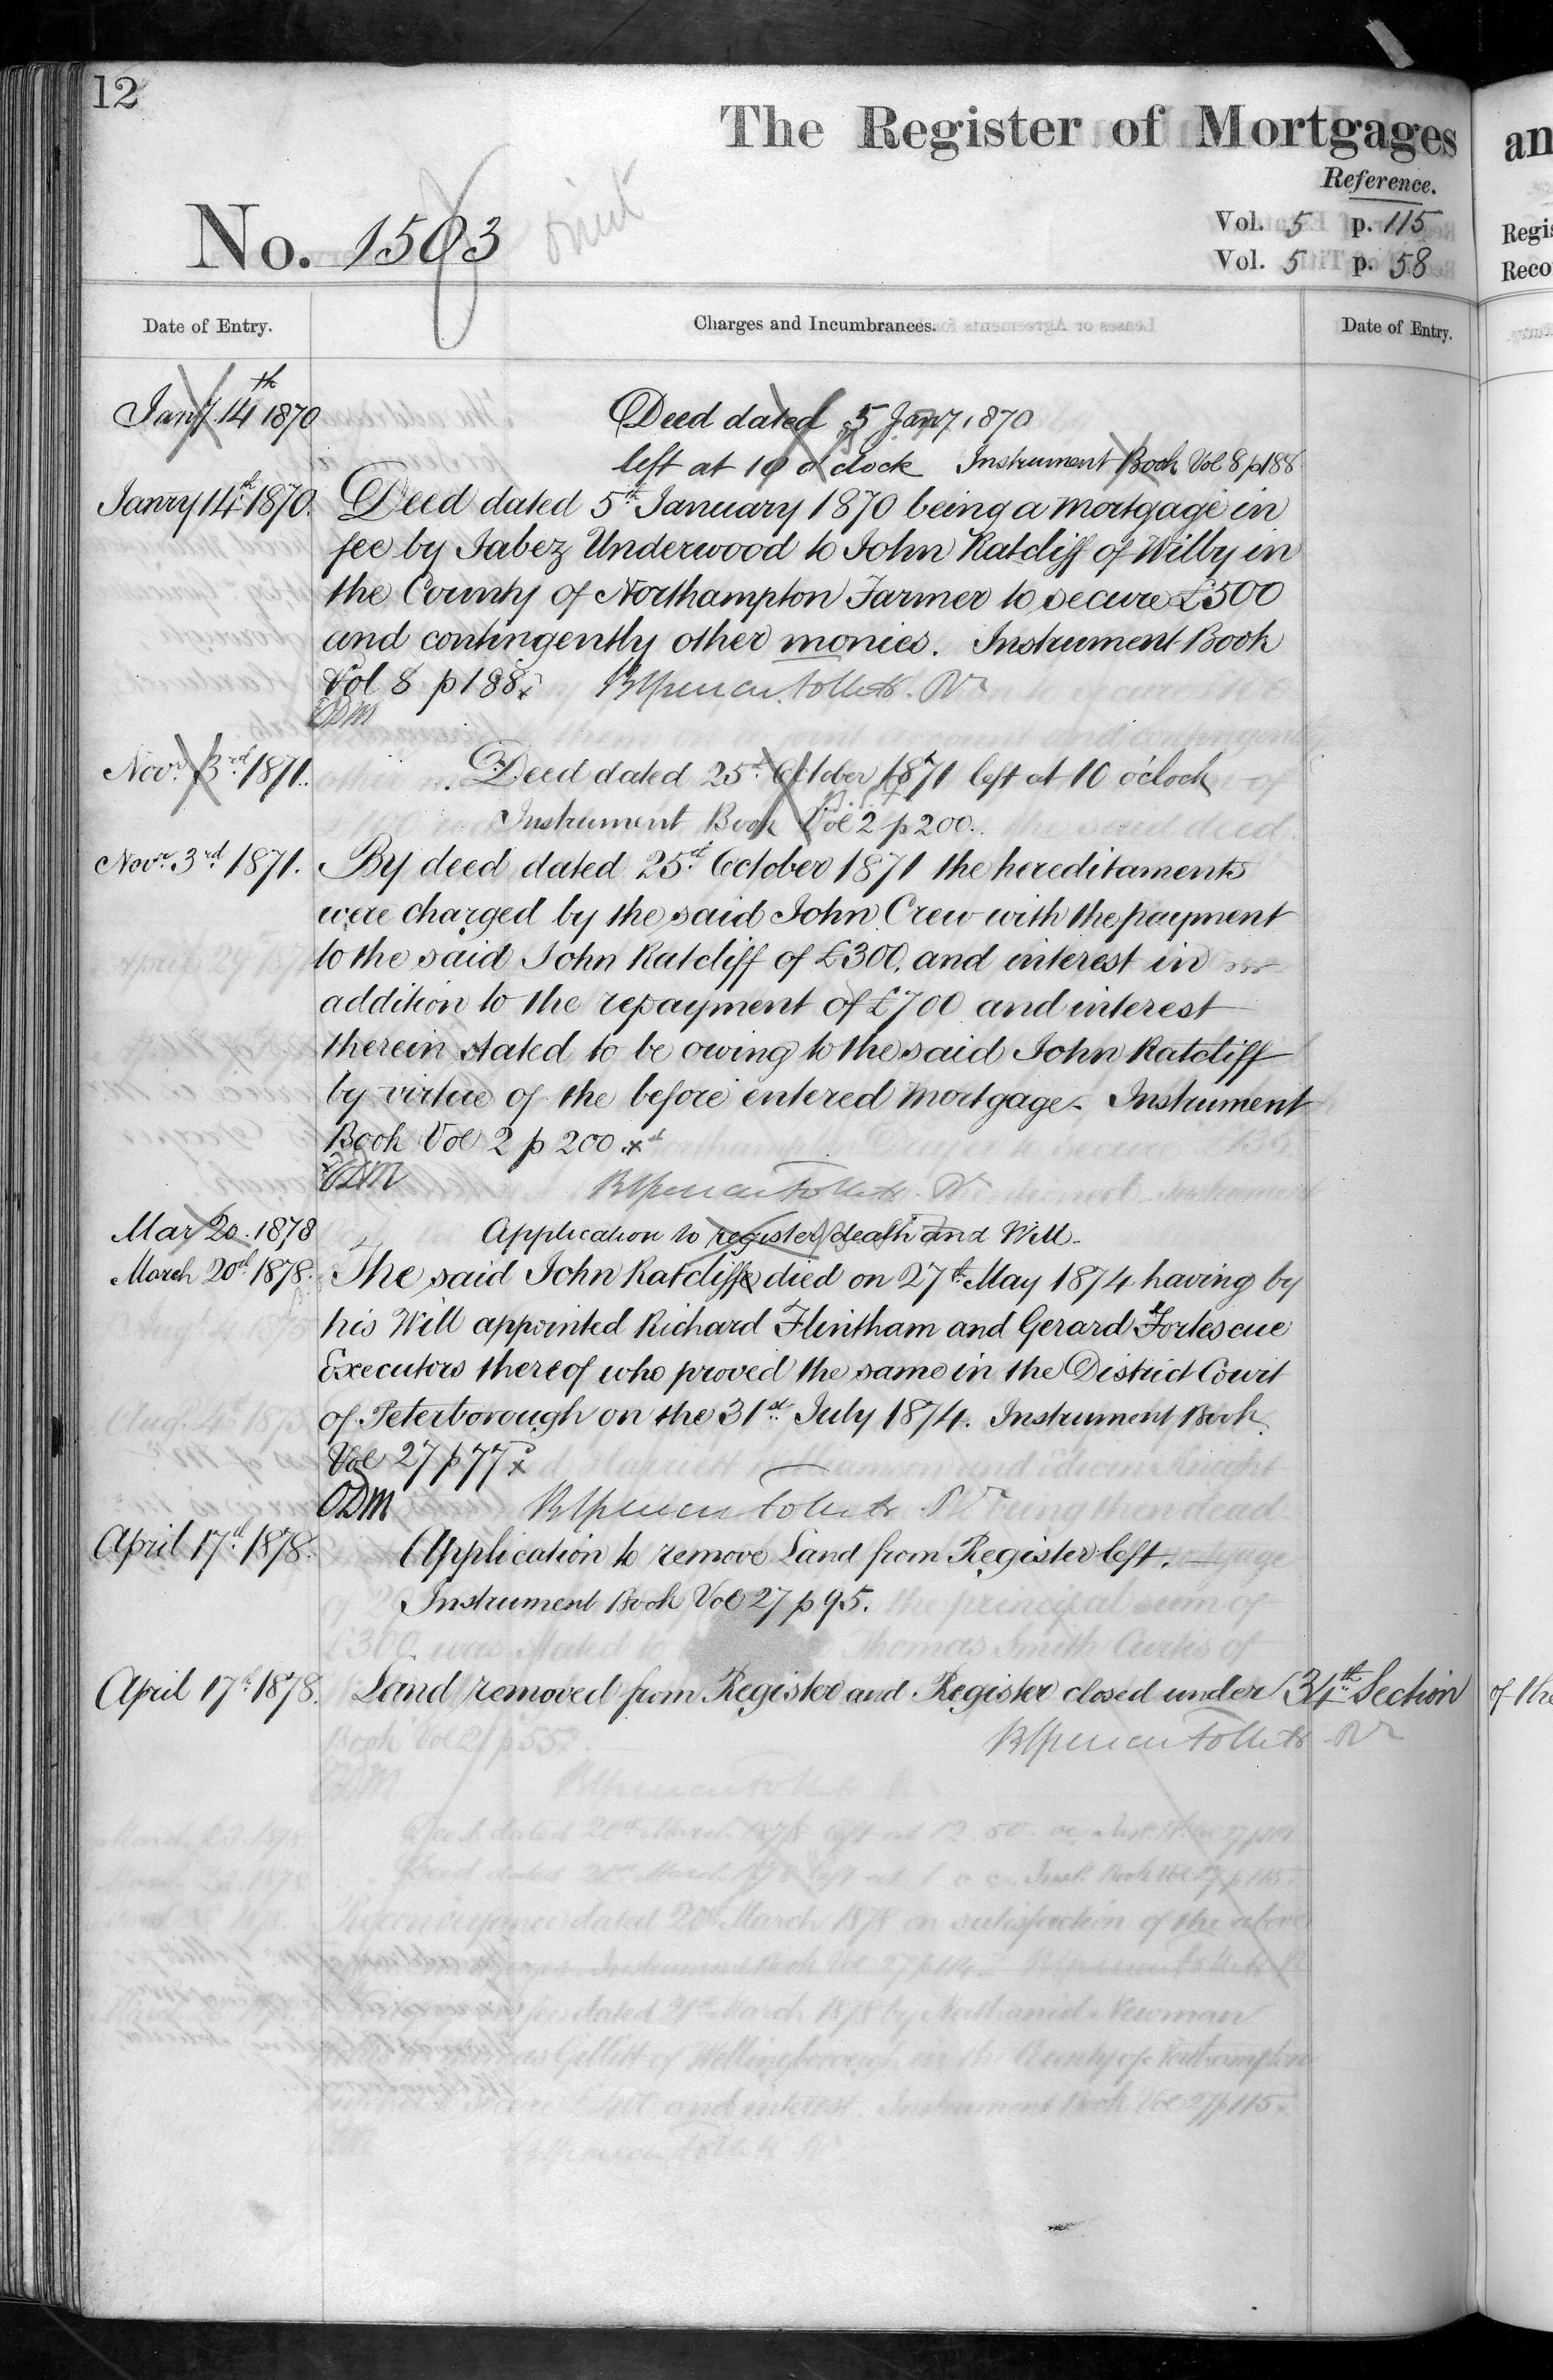 12
The Register of Mortgages
an
Reference.
No. 1503
Vol. 5 p. 115
Regis
Vol. 5 p. 58
Reco
Date of Entry.
Charges and Incumbrances.
Date of Entry.
Jany. 14th 1870
Deed dated 5 Jany 1870
left at 10 o'clock Instrument Book Vol 8 p 188
Janry 14th 1870.
Deed dated 5th January 1870 being a mortgage in
fee by Jabez Underwood to John Ratcliff of Wilby in
the County of Northampton Farmer to secure £500
and contingently other monies. Instrument Book
Vol 8 p 188.
ODM
Novr. 3rd 1871.
Deed dated 25th October 1871 left at 10 o'clock
Instrument Book Vol 2 p 200.
Novr. 3rd 1871.
By deed dated 25th October 1871 the hereditaments
were charged by the said John Crew with the payment
to the said John Ratcliff of £300, and interest in
addition to the repayment of £700 and interest
therein stated to be owing to the said John Ratcliff
by virtue of the before entered mortgage. Instrument
Book Vol 2 p 200.
ODM
Mar 20. 1878
Application to register death and Will.
March 20th 1878.
The said John Ratcliffe died on 27th May 1874 having by
his Will appointed Richard Flintham and Gerard Fortescue
Executors thereof who proved the same in the District Court
of Peterborough on the 31st July 1874. Instrument Book.
Vol 27 p 77
ODM
April 17th 1878.
Application to remove Land from Register left.
Instrument Book Vol 27 p 95.
April 17th 1878.
Land removed from Register and Register closed under 34th Section of the